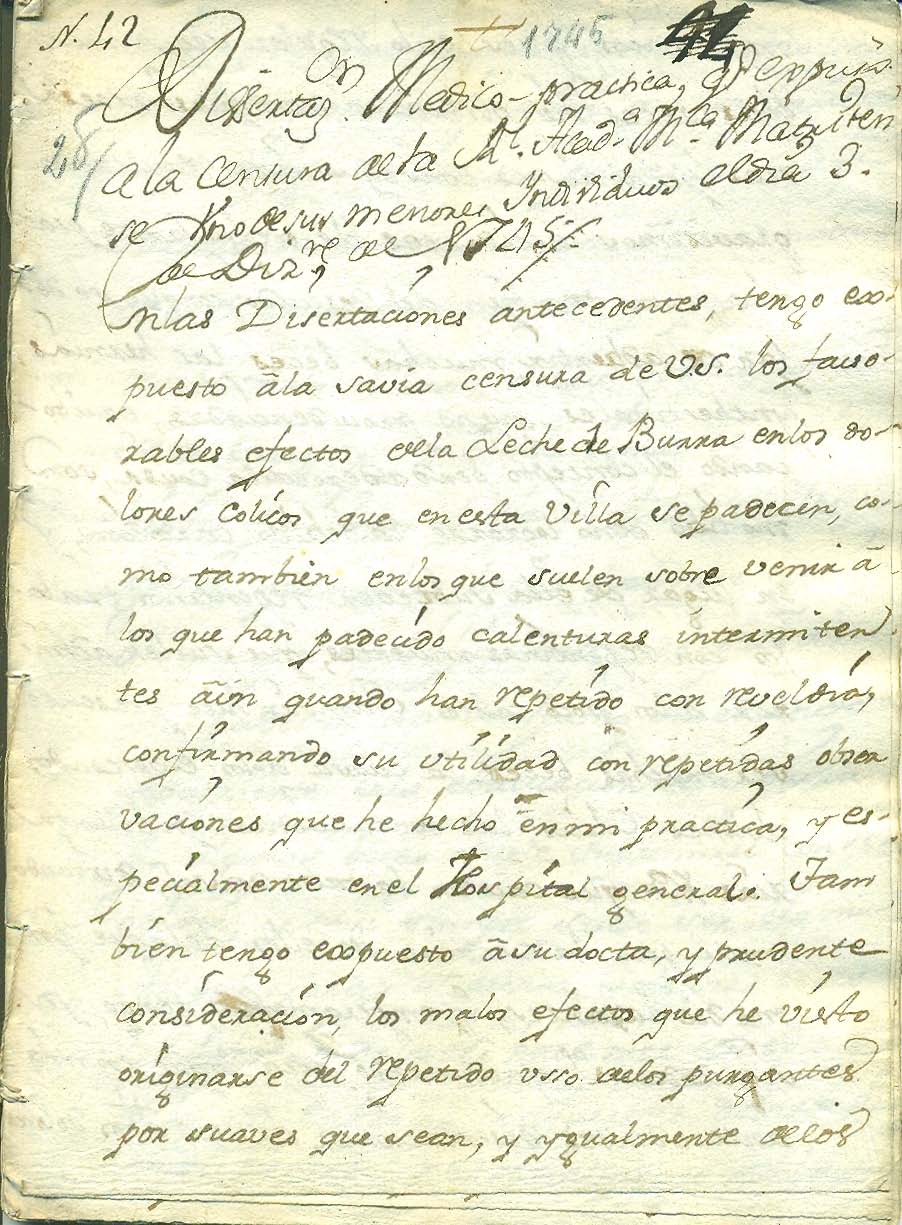 N. 42 1745
28
Disertaz.on Medico-practica, q.e expuso
a la Censura de la R.l Acad.a M.ca Matriten
se Vno de sus menores Yndividuos el dia 3.
de Diz.re de 1745
En las Disertaciones antecedentes, tengo ex-
puesto â la savia censura de V.S. los favo-
rables efectos de la Leche de Burra en los do-
lores colicos que en esta Villa se padecen, co-
mo tambien en los que suelen sobre venir â
los que han padecido calenturas intermiten
tes aûn quando han repetido con reveldia,
confirmando su utilidad con repetidas obser
vaciones que he hecho en mi practica, y es-
pecialmente en el Hospital general. Tam
bien tengo expuesto â su docta, y prudente
consideracion, los malos efectos que he visto
originarse del repetido vsso de los purgantes
por suaves que sean, y ygualmente de los